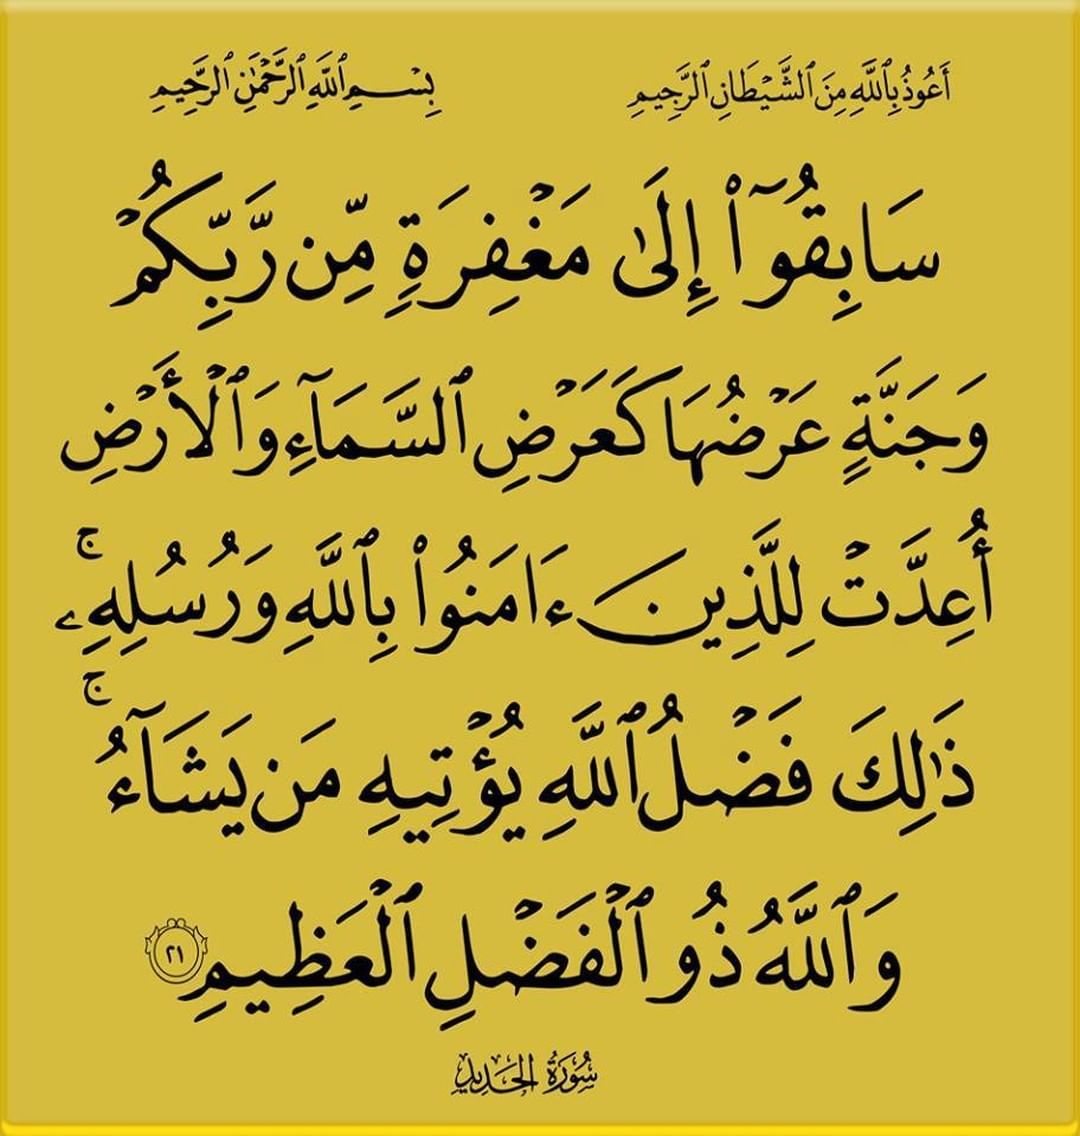 أَعُوذُ بِٱللَّهِ مِنَ ٱلشَّيْطَانِ ٱلرَّجِيمِ بِسْمِ ٱللَّهِ ٱلرَّحْمَٰنِ ٱلرَّحِيمِ
سَابِقُوٓا۟ إِلَىٰ مَغْفِرَةٍ مِّن رَّبِّكُمْ
وَجَنَّةٍ عَرْضُهَا كَعَرْضِ ٱلسَّمَآءِ وَٱلْأَرْضِ
أُعِدَّتْ لِلَّذِينَ ءَامَنُوا۟ بِٱللَّهِ وَرُسُلِهِۦ ۚ
ذَٰلِكَ فَضْلُ ٱللَّهِ يُؤْتِيهِ مَن يَشَآءُ ۚ
وَٱللَّهُ ذُو ٱلْفَضْلِ ٱلْعَظِيمِ ٢١
سُورَةُ الحَدِيدِ